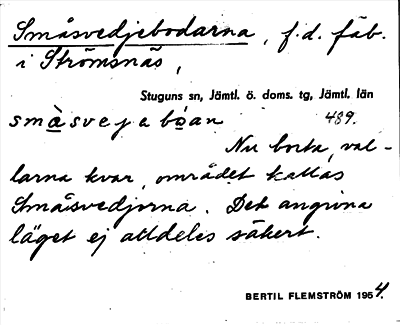 Småsvedjebodarna, f.d. fäb.
i Strömsnäs,
Stuguns sn, Jämtl. ö. doms. tg, Jämtl. län
småsvejeboan 489.
Nu borta, val-
larna kvar, området kallas
Småsvedjorna. Det angivna
läget ej alldeles säkert.
BERTIL FLEMSTRÖM 1954.